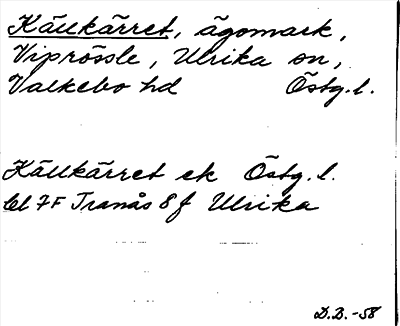 Källkärret, ägomark,
Viprössle, Ulrika sn,
Valkebo hd Östg.l.
Källkärret ek Östg.l.
bl 7F Tranås 8f Ulrika
D.B.-58